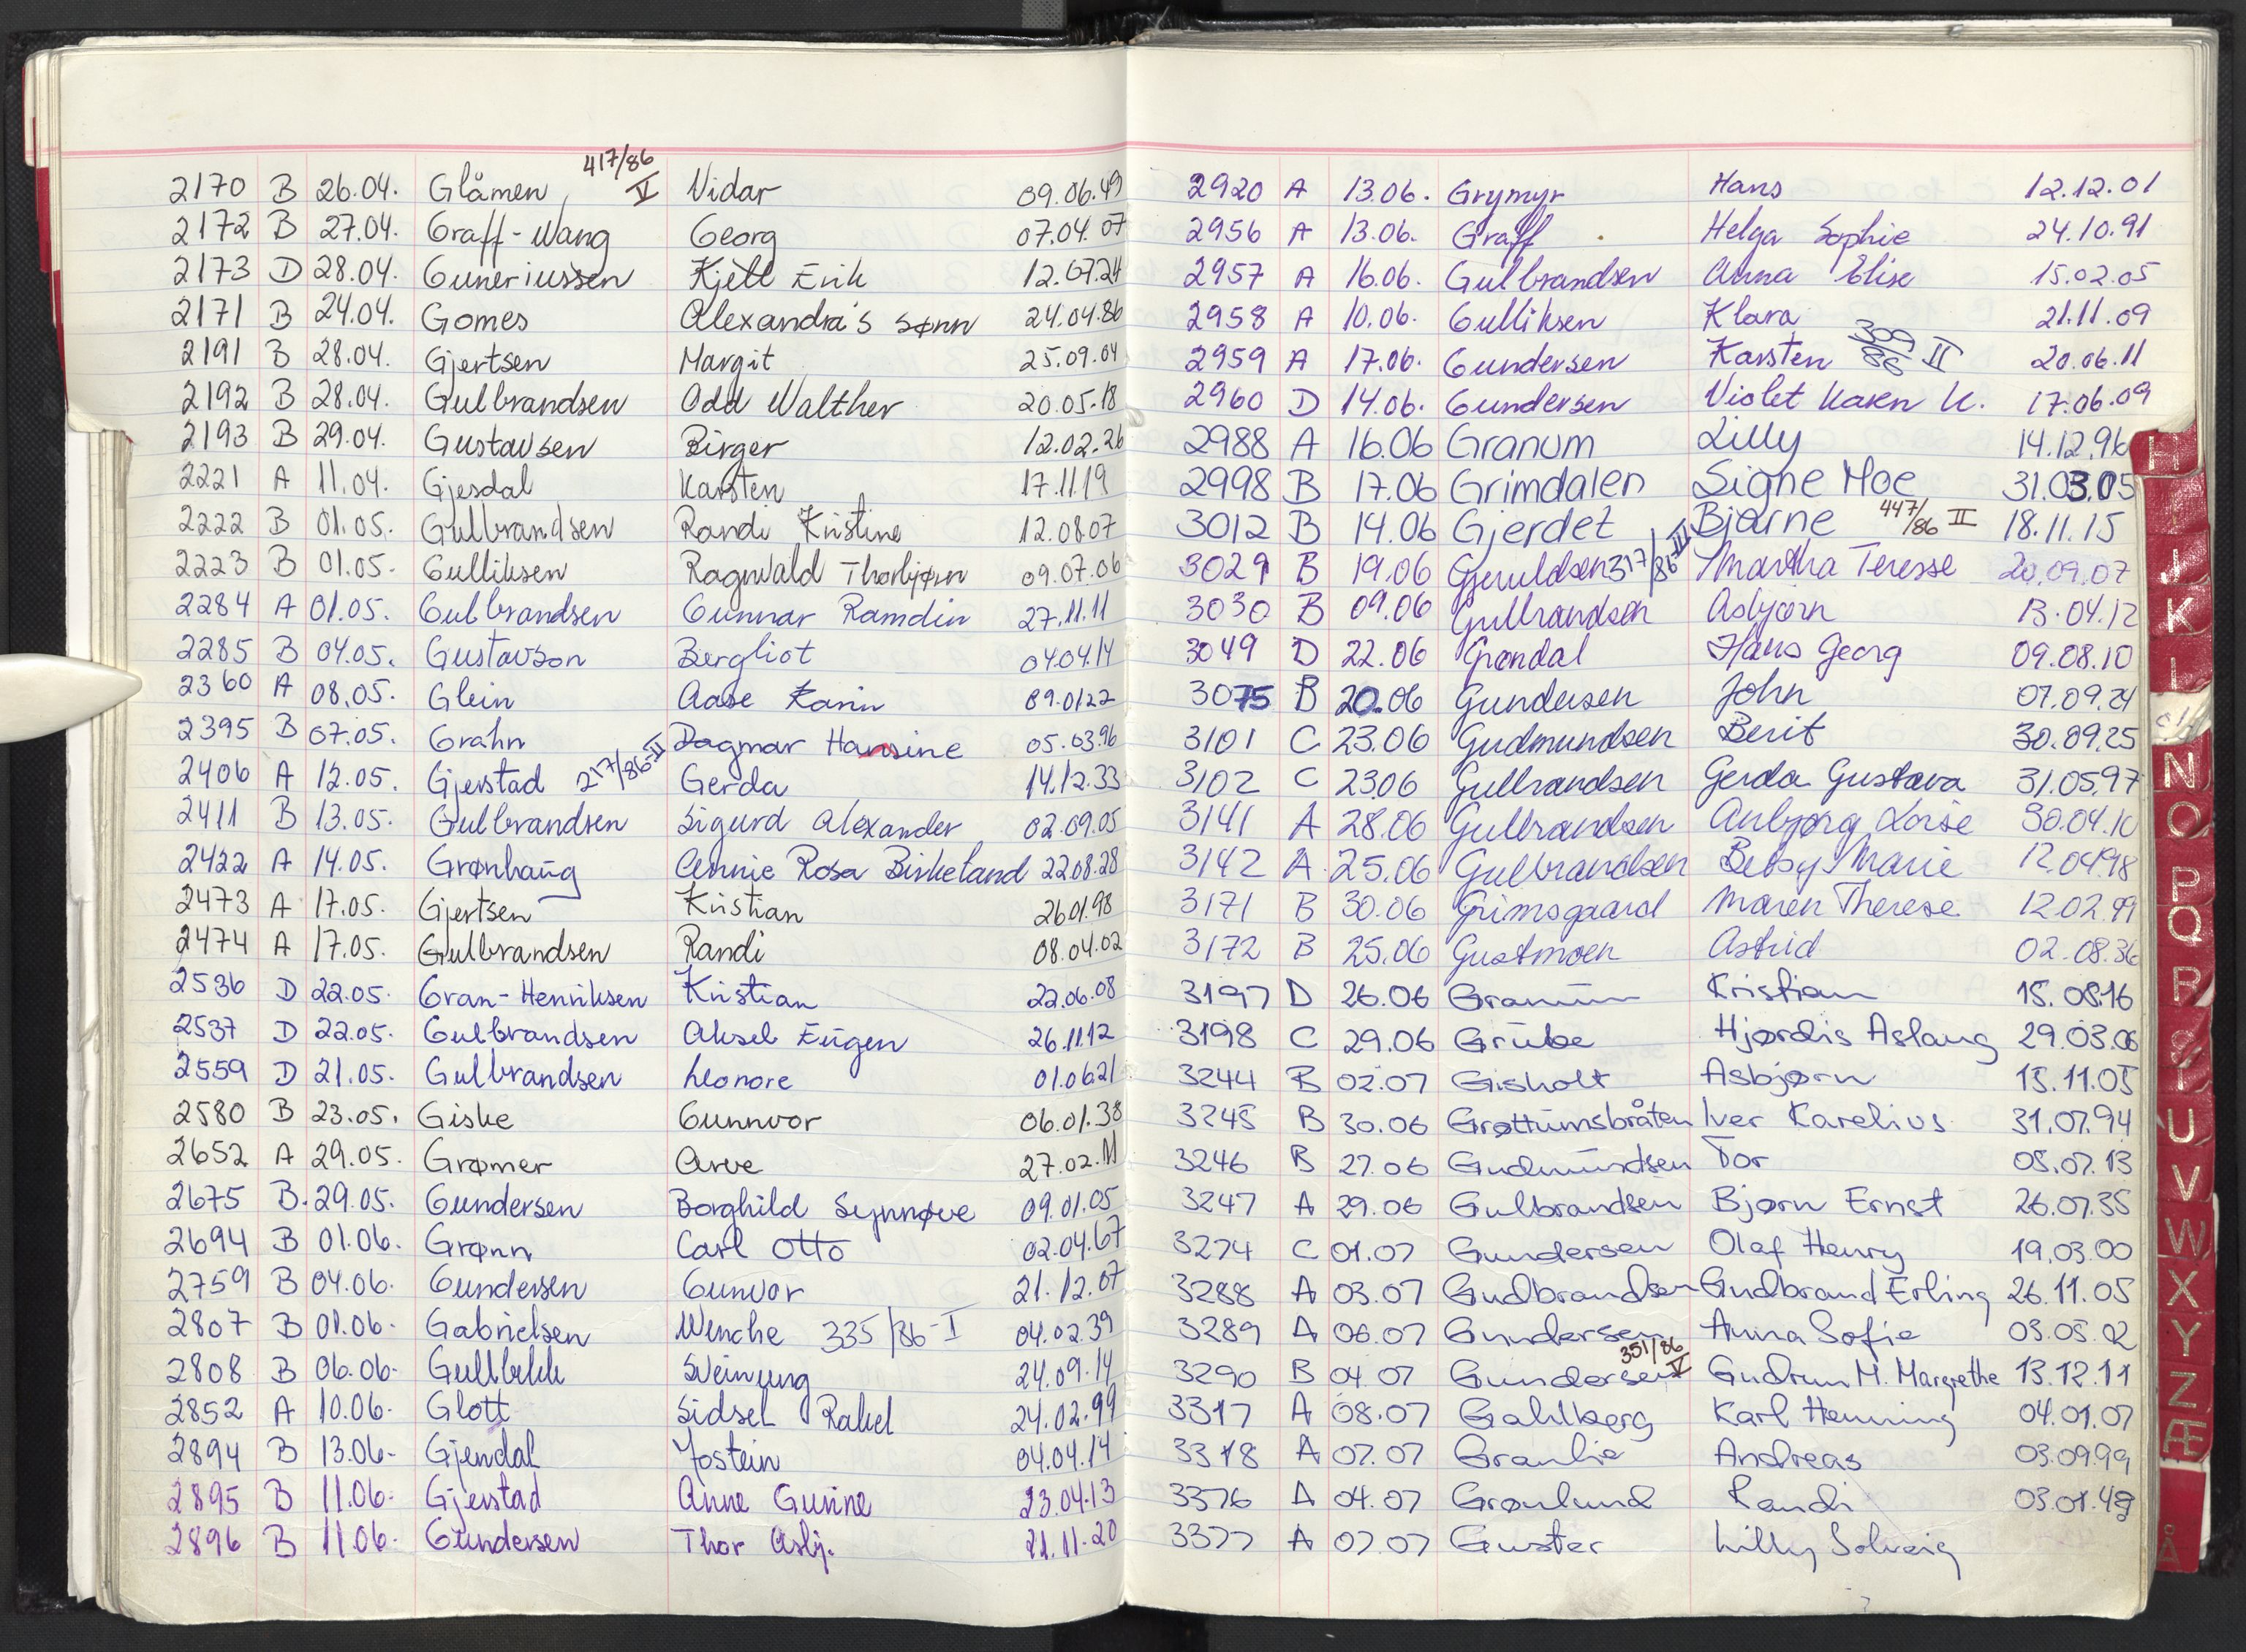 417/86
2170 B 26.04. Glåmen V Vidar 09.06.49
2172 B 27.04. Graff-Wang Georg 07.04.07
2173 D 28.04. Guneriussen Kjell Erik 12.07.24
2171 B 24.04. Gomes Alexandra's sønn 24.04.86
2191 B 28.04. Gjertsen Margit 25.09.04
2192 B 28.04. Gulbrandsen Odd Walther 20.05.18
2193 B 29.04. Gustavsen Birger 12.02.26
2221 A 11.04. Gjesdal Karsten 17.11.19
2222 B 01.05. Gulbrandsen Randi Kristine 12.08.07
2223 B 01.05. Gulliksen Ragnvald Thorbjørn 09.07.06
2284 A 01.05. Gulbrandsen Gunnar Ramdin 27.11.11
2285 B 04.05. Gustavson Bergliot 04.04.14
2360 A 08.05. Glein Aase Karin 09.01.22
2395 B 07.05. Grahn Dagmar Hansine 05.03.96
2406 A 12.05. Gjerstad 217/86-II Gerda 14.12.33
2411 B 13.05. Gulbrandsen Sigurd Alexander 02.09.05
2422 A 14.05. Grønhaug Annie Rosa Birkeland 22.08.28
2473 A 17.05. Gjertsen Kristian 26.01.98
2474 A 17.05. Gulbrandsen Randi 08.04.02
2536 D 22.05. Gran-Henriksen Kristian 22.06.08
2537 D 22.05. Gulbrandsen Aksel Eugen 26.11.12
2559 D 21.05. Gulbrandsen Leonore 01.06.21
2580 B 23.05. Giske Gunnvor 06.01.38
2652 A 29.05. Grømer Arve 27.02.11
2675 B. 29.05. Gundersen Borghild Synnøve 09.01.05
2694 B 01.06. Grønn Carl Otto 02.04.67
2759 B 04.06. Gundersen Gunvor 21.12.07
2807 B 01.06. Gabrielsen Wenche 335/86-I 04.02.39
2808 B 06.06. Gullbekk Sveinung 24.09.14
2852 A 10.06. Glott Sidsel Rakel 24.02.99
2894 B 13.06. Gjendal Jostein 04.04.14
2895 B 11.06. Gjerstad Anne Gurine 23.04.13
2896 B 11.06. Gundersen Thor Asbj. 21.11.20
2920 A 13.06. Grymyr Hans 12.12.01
2956 A 13.06. Graff Helga Sophie 24.10.91
2957 A 16.06. Gulbrandsen Anna Elise 15.02.05
2958 A 10.06. Gulliksen Klara 21.11.09
2959 A 17.06. Gundersen Karsten 309/86 II 20.06.11
2960 D 14.06. Gundersen Violet Karen K. 17.06.09
2988 A 16.06 Granum Lilly 14.12.96
2998 B 17.06 Grimdalen Signe Moe 31.03.05
3012 B 14.06 Gjerdet Bjarne 447/86 II 18.11.15
3029 B 19.06 Gjeruldsen 317/86-III Martha Terese 20.09.07
3030 B 09.06 Gulbrandsen Asbjørn 13.04.12
3049 D 22.06 Grøndal Hans Georg 09.08.10
3075 B 20.06 Gundersen John 07.09.24
3101 C 23.06 Gudmundsen Berit 30.09.25
3102 C 23.06 Gulbrandsen Gerda Gustava 31.05.97
3141 A 28.06 Gulbrandsen Anbjørg Loise 30.04.10
3142 A 25.06 Gulbrandsen Betsy Marie 12.04.98
3171 B 30.06 Grimsgaard Maren Therese 12.02.99
3172 B 25.06 Gustmoen Astrid 02.08.36
3197 D 26.06 Granum Kristian 15.08.16
3198 C 29.06 Grube Hjørdis Aslaug 29.03.06
3244 B 02.07 Gisholt Asbjørn 15.11.05
3245 B 30.06 Grøttumsbråten Iver Karelius 31.07.94
3246 B 27.06 Gudmundsen Tor 05.07.13
3247 A 29.06 Gulbrandsen Bjørn Ernst 26.07.35
3274 C 01.07 Gundersen Olaf Henry 19.03.00
3288 A 03.07 Gudbrandsen Gudbrand Erling 26.11.05
3289 A 06.07 Gundersen Anna Sofie 03.05.02
351/86
3290 B 04.07 Gundersen V Gudrun M. Margrethe 13.12.11
3317 A 08.07 Gahlberg Karl Henning 04.01.07
3318 A 07.07 Granlie Andreas 03.09.99
3376 A 04.07 Grønlund Randi 03.01.49
3377 A 07.07 Guster Lilly Solveig
H
J
K
L
N
O
P
Q
R
S
U
V
W
X
Y
Z
Æ
Å